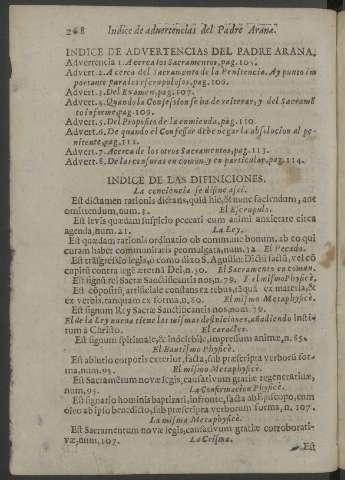 268 Indice de aduertencias del Padre Arana.
INDICE DE ADVERTENCIAS DEL PADRE ARANA.
Advertencia 1. Acerca los Sacramentos, pag. 105.
Advert. 2. Acerca del Sacramento de la Penitencia. Ay punto im
portante para los escrupulosos, pag. 106.
Advert. 3. Del Examen, pag. 107.
Advert. 4. Quando la Confession se ha de reiterar, y del Sacramē
to informe, pag. 109.
Advert. 5. Del Proposito de la enmienda, pag. 110.
Advert. 6. De quando el Confessor debe negar la absolucion al pe-
nitente, pag. 111.
Advert. 7. Acerca de los otros Sacramentos, pag. 113.
Advert. 8. De las censuras en comun, y en particular, pag. 114.
INDICE DE LAS DIFINICIONES.
La conciencia se difine assi.
Est dictamen rationis dictans, quid hic, & nunc faciendum, aut
omittendum, num. 3. El Escrupulo.
Est levis quædam suspicio peccati cum animi anxietate circa
agenda, num. 21. La Ley.
Est quædam rationis ordinatio ob commune bonum, ab eo qui
curam habet communitatis promulgata, num. 32. El Pecado.
Est trāsgressio legis, o como dixo S. Agustin: Dictū factū, vel cō
cupitū contra legē æternā Dei, n. 50. El Sacramento en comun.
Est signū rei Sacræ Sanctificantis nos, n. 79. Y el mismo Physicè.
Est cōpositū artificiale constans ex rebus, tāquā ex materia, &
ex verbis, tanquam ex forma, n. 80. El mismo Metaphysicè.
Est signum Rey Sacræ Sanctificantis nos, num. 79.
El de la Ley nueva tiene las mismas definiciones, añadiendo Institu-
tum à Christo. El caracter.
Est signum spirituale, & indelebile, impressum animæ, n. 85.
El Bautismo Physicè.
Est ablutio corporis exterior, facta, sub præscripta verborū for-
ma, num. 95. El mismo Metaphysicè.
Est Sacramentum novæ legis, causativum gratiæ regenerativæ,
num. 95. La Confirmacion Physicè.
Est signatio hominis baptizati, in fronte, facta ab Episcopo, cum
oleo ab ipso benedicto, sub præscripta verborum forma, n. 107.
La misma Metaphysicè.
Est Sacramentum novæ legis, causativum gratiæ corroborati-
væ, num. 107. La Crisma.
Est